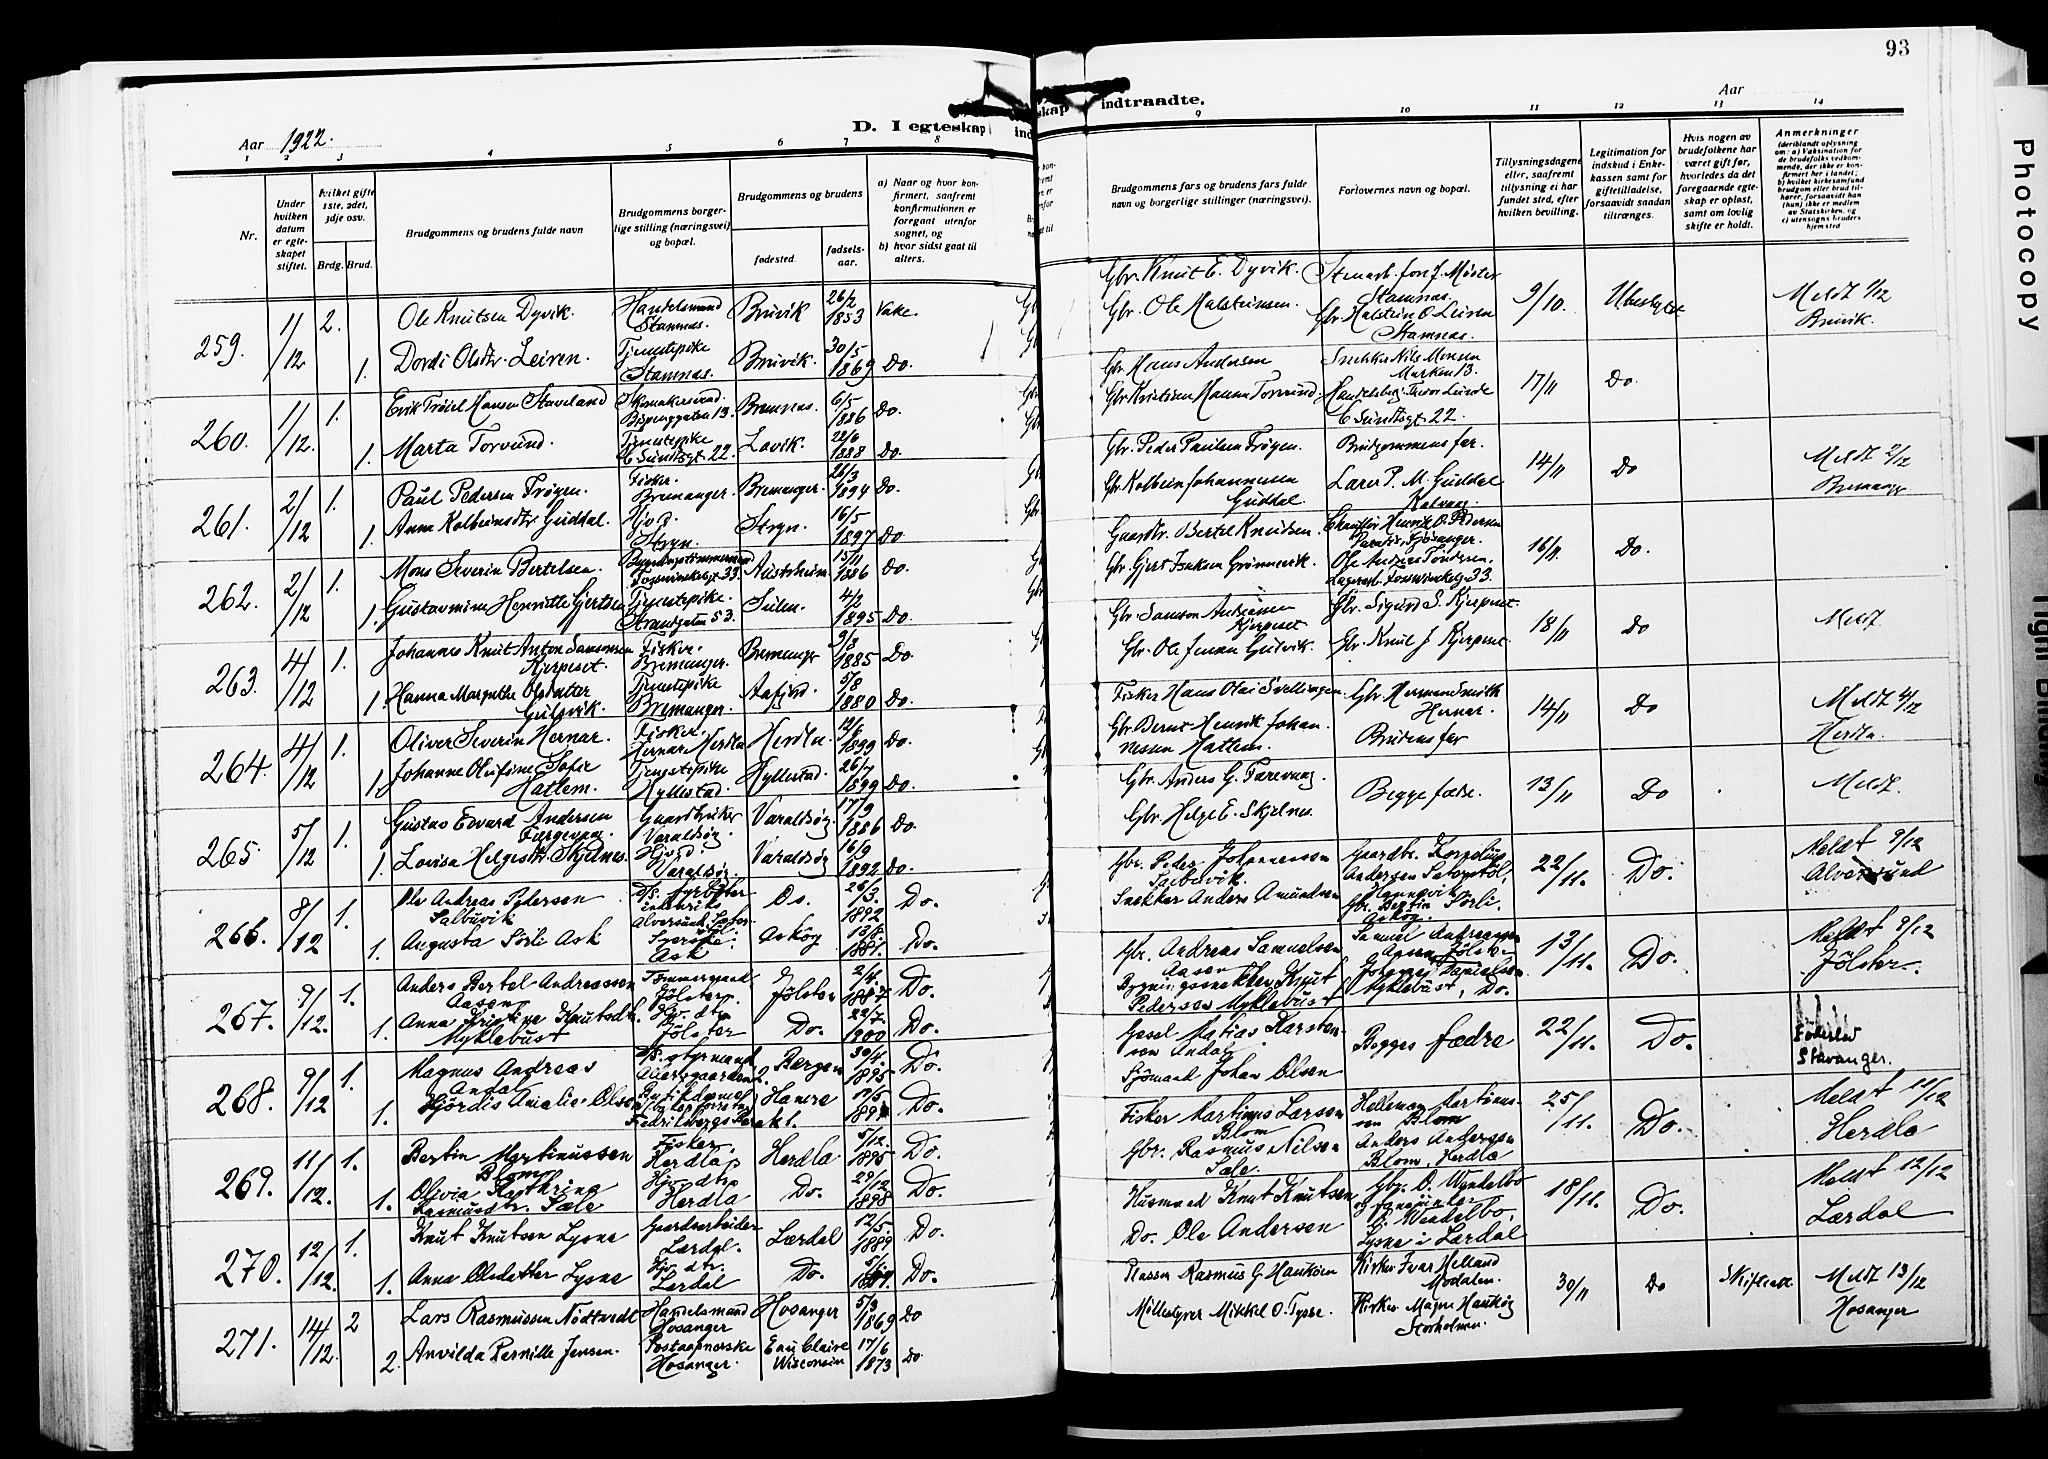 93
Photocopy
Tight Binding
Aar 1922.
D. I egteskap
ind
skap indtraadte.
Aar
1 2 3 4 5 6 7 8
9 10 11 12 13 14
Nr.
Under hvilken datum er egteskapet stiftet.
hvilket gifte 1ste, 2det, 3dje osv.
Brdg. Brud.
Brudgommens og brudens fulde navn
Brudgommens borgerlige stilling (næringsvei) og bopæl.
Brudgommens og brudens
fødested.
fødselsaar.
a) Naar og hvor konfirmert, saafremt konfirmationen er foregaat utenfor sognet, og
b) hvor sidst gaat til alters.
Brudgommens fars og brudens fars fulde navn og borgerlige stillinger (næringsvei).
Forlovernes navn og bopæl.
Tillysningsdagene eller, saafremt tillysning ei har fundet sted, efter hvilken bevilling.
Legitimation for indskud i Enkekassen samt for giftetilladelse, forsaavidt saadan tiltrænges.
Hvis nogen av brudefolkene har været gift før, hvorledes da det foregaaende egteskap er opløst, samt om lovlig skifte er holdt.
Anmerkninger
(deriblandt oplysning om: a) Vaksination for de brudefolks vedkommende, der ikke er konfirmert her i landet; b) hvilket kirkesamfund brudgom eller brud tilhører, forsaavidt han (hun) ikke er medlem av Statskirken, og c) utensogns bruders hjemsted
259. 1/12 2. Ole Knutsen Dyvik. Handelsmand Stamnas. Bruvik 26/2 1853 Vake.
1. Dordi Olsdtr. Leiren. Tjenestepike Stamnas. Bruvik. 30/5 1869 Do.
Gbr. Knut E. Dyvik.
Gbr. Ole Halsteinsen. Stamnas. Gbr. Halstein O Leiren Stamnas. 9/10. Meldt 1/12 Bruvik.
260. 1/12. 1. Erik Hansen Staveland Bispenggaten 13. Bremnes. 6/5 1886 Do.
1. Marta Torvund. Tjenestepike C Sundtsgt 22. Lavik. 22/6 1888 Do.
Gbr. Hans Andersen Snekker Nils Monsen Marken 13.
Gbr. Kristian Hansen Torvund C Sundtsgt. 22. 17/11 Do
261. 2/12 1. Paul Pedersen Frøyen. Fisker. Bremanger. Bremanger. 26/3 1894 Do.
1. Anna Kolbeinsdtr Guddal. Hjvd. Stryn. Stryn. 16/5 1897 Do
Gbr. Peder Paulsen Frøyen. Brudgommens far.
Gbr. Kolbein Johannessen Guddal Lærer P. M. Guddal Kalvaag. 14/11 Do Meldt 2/12 Bremanger
262. 2/12 1. Mons Severin Bertelsen. Austrheim 15/11 1886 Do.
1. Gustavmine Henriette Gjertsen Tjenestepike. Strandgaten 53. Sulen. 4/2 1895 Do.
Gaardbr. Bertel Knudsen. Chauffør Henrik O. Pedersen Paradis, Fjøsanger.
Gbr. Gjert Isaksen Grønnevik Ole Andreas Tøndersen. 16/11. Do.
263. 4/12 1. Johannes Knut Anton Samsonsen Kjerpeset. Fisker. Bremanger. Bremanger 9/8 1885 Do.
1. Hanna Margrethe Olsdatter Gulsvik. Tjenestepike Bremanger. Aafjord. 5/8 1880 Do.
Gbr. Samson Andersen Kjerpeset Gbr. Sigurd S. Kjerpeset.
Gbr. Ole Jensen Gulsvik. Gbr. Knut J Kjerpeset. 18/11 Do Meldt.
264. 4/12 1. Oliver Severin Hernar. Fisker. Hernar, Herdla Herdla. 1899 Do.
1. Johanne Olufine Sofie Hatlem. Tjenestepike Hyllestad. Hyllestad. 26/7 1899 Do.
Fisker Hans Olai Svellingen. Gbr. Herman Smith Hernar.
Gbr Bernt Henrik Johannessen Hatlem. Brudens far 14/11 Do Meldt 4/12 Herdla.
265. 5/12 1. Gustav Edvard Andersen Færgevaag. Gaardbruker Varaldsøy. Varaldsøy. 17/9 1886 Do.
1. Lovisa Helgesdtr. Skjelnes. Hjvd. Varaldsøy. Varaldsøy 16/9 1892 Do.
Gbr. Anders G. Færevaag.
Gbr. Helge E. Skjelnes. Begge fædre. 13/11 Do Meldt.
266. 8/12 1. Ole Andreas Pedersen Salbuvik D/S. fyrbøter Os. 26/3. 1892 Do.
1. Augusta Sörli Ask Syerske. Ask Asköy 1881. Do.
Gbr. Peder Johannessen Salbuvik.
Snekker Anders Amundsen Gbr. Bertin Sörli. Asköy. 22/11. Do. Meldt 9/12 Alversund
267. 9/12. 1. Anders Bertel Andreassen Aasen Tömmermand Jölster. Jölster 2/4. 1887 Do.
1. Anna Kristine Knutsdtr. Myklebust Hjv. dtr. Jölster Do. 22/7. 1900 Do.
Gbr. Andreas Samuelsen Aasen Samuel Andreassen Aasen, Jölster
Bygningssnekker Knut Pedersen Myklebust Johannes Danielsen Myklebust, Do. 13/11. Do. Meldt 9/12 Jölster.
268. 9/12 1. Magnus Andreas Andal D/S. styrmand Bergen 30/4. 1895 Do.
1. Hjördis Amalie Olsen Hamre 17/5 Do.
Matias Karstensen Andal
Sjömand Johan Olsen Begges fædre 22/11. Do. Stavanger.
269. 11/12. 1. Bertin Martinussen Blom Fisker. Herdla Herdla 5/12. 1895 Do.
1. Olivia Kathrina Rasmusdtr. Sæle Hjv. dtr. Herdla Do. 29/12 1898 Do.
Fisker Martinus Larsen Blom
Gbr. Rasmus Nilsen Sæle. Anders Andersen Blom, Herdla 25/11. Do. Meldt 11/12 Herdla
270. 12/12. 1. Knut Knutsen Lysne Gaardsarbeider Lærdal. Lærdal 12/5. 1889 Do.
1. Anna Olsdatter Lysne Hjv. dtr. Lærdal Do. Do.
Husmand Knut Knutsen
Do. Ole Andersen Lysne i Lærdal 18/11. Do. Meldt 12/12 Lærdal
271. 14/12. 2 Lars Rasmussen Nödtvedt Handelsmand Hosanger Hosanger 5/9 1869 Do
2. Anvilda Pernille Jensen. Postaapnerske Hosanger. Eau Claire Wisconsin 17/6 1873 Do
Rasmus G Haukøen Kirker Ivar Helland Modalen.
Mikkel O. Tysse. Kirker Magne Haukøy Storholmen. 30/11 Do Skifteatt. Meldt 13/12 Hosanger